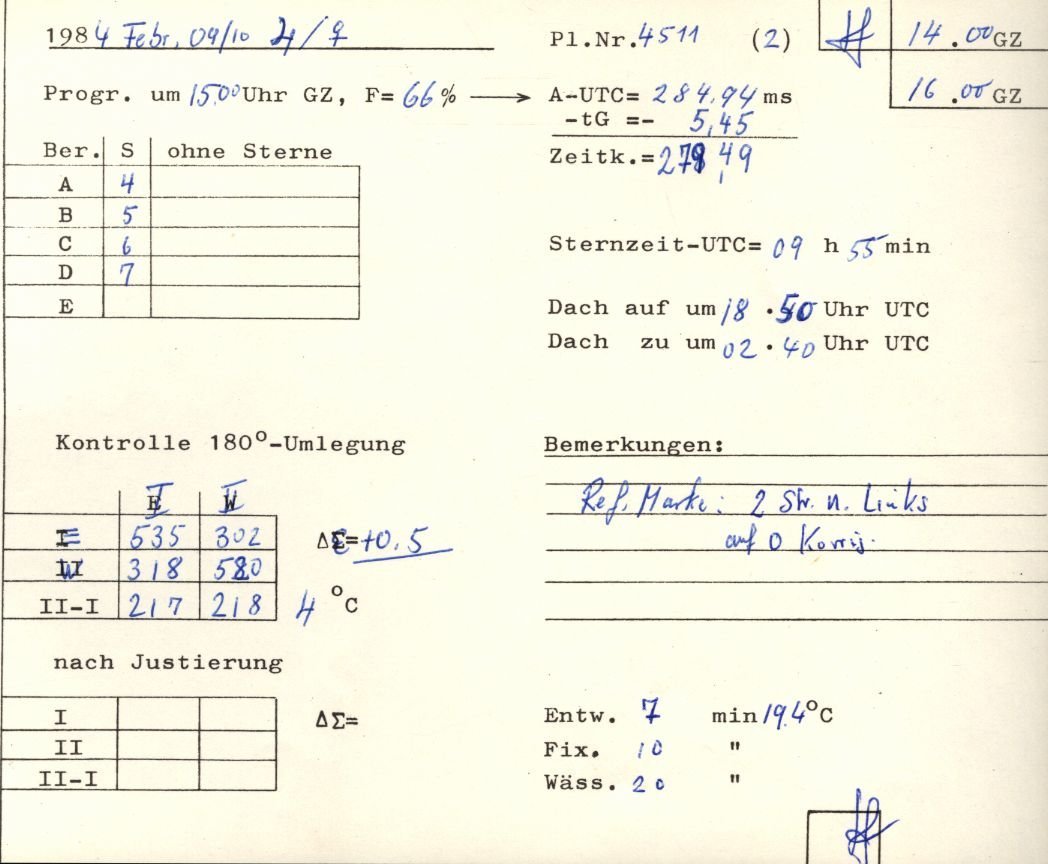 1984 Febr. 09/10 ♃/♀
Pl.Nr.4511 (2)
14.00 GZ
16.00 GZ
Progr. um 15.00 Uhr GZ, F= 66% → A-UTC= 284,94 ms
-tG =- 5,45
Zeitk.= 279,49
Ber. S ohne Sterne
A 4
B 5
C 6
D 7
E
Sternzeit-UTC= 09 h 55 min
Dach auf um 18 . 50 Uhr UTC
Dach zu um 02 . 40 Uhr UTC
Kontrolle 180°-Umlegung
I II
E 535 302
W 318 520
II-I 217 218
ΔΣ= +0.5
4 °C
Bemerkungen:
Ref. Marke: 2 Str. n. Links
auf 0 Korrig.
nach Justierung
I
II
II-I
ΔΣ=
Entw. 7 min 19.4°C
Fix. 10 "
Wäss. 20 "